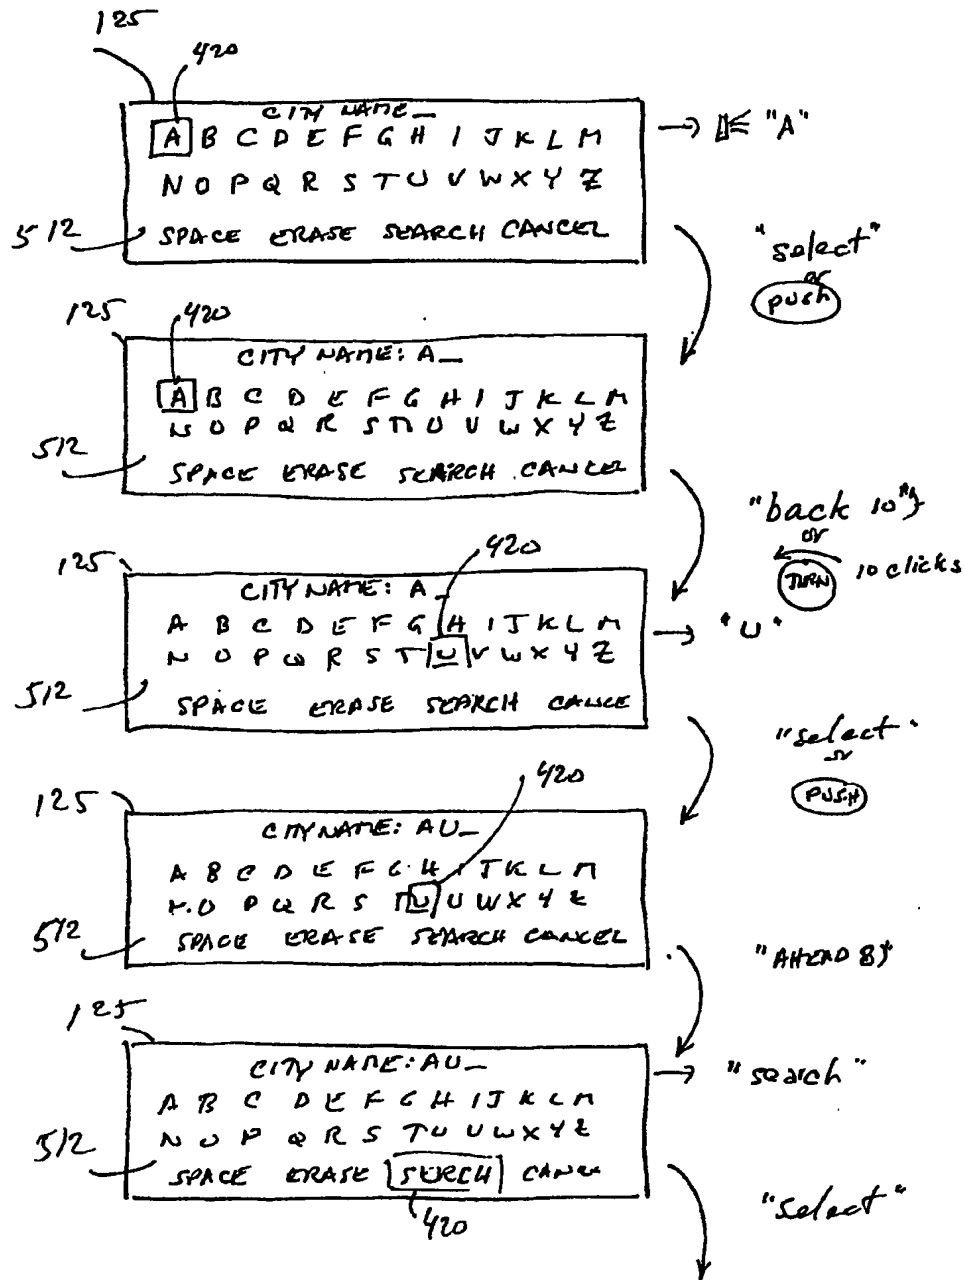 125
420
CITY NAME_
A B C D E F G H I J K L M → "A"
N O P Q R S T U V W X Y Z
512 SPACE ERASE SEARCH CANCEL
"select"
or
PUSH
125 420
CITY NAME: A_
A B C D E F G H I J K L M
N O P Q R S T U V W X Y Z
512 SPACE ERASE SEARCH CANCEL
"back 10"
or
TURN 10 clicks
125 420
CITY NAME: A_
A B C D E F G H I J K L M
N O P Q R S T U V W X Y Z → "U"
512 SPACE ERASE SEARCH CANCE
"select"
or
PUSH
125 420
CITY NAME: AU_
A B C D E F G H I J K L M
N O P Q R S T U V W X Y Z
512 SPACE ERASE SEARCH CANCEL
"AHEAD 8"
125
CITY NAME: AU_ → "search"
A B C D E F G H I J K L M
N O P Q R S T U V W X Y Z
512 SPACE ERASE SERCH CANCE
420
"select"